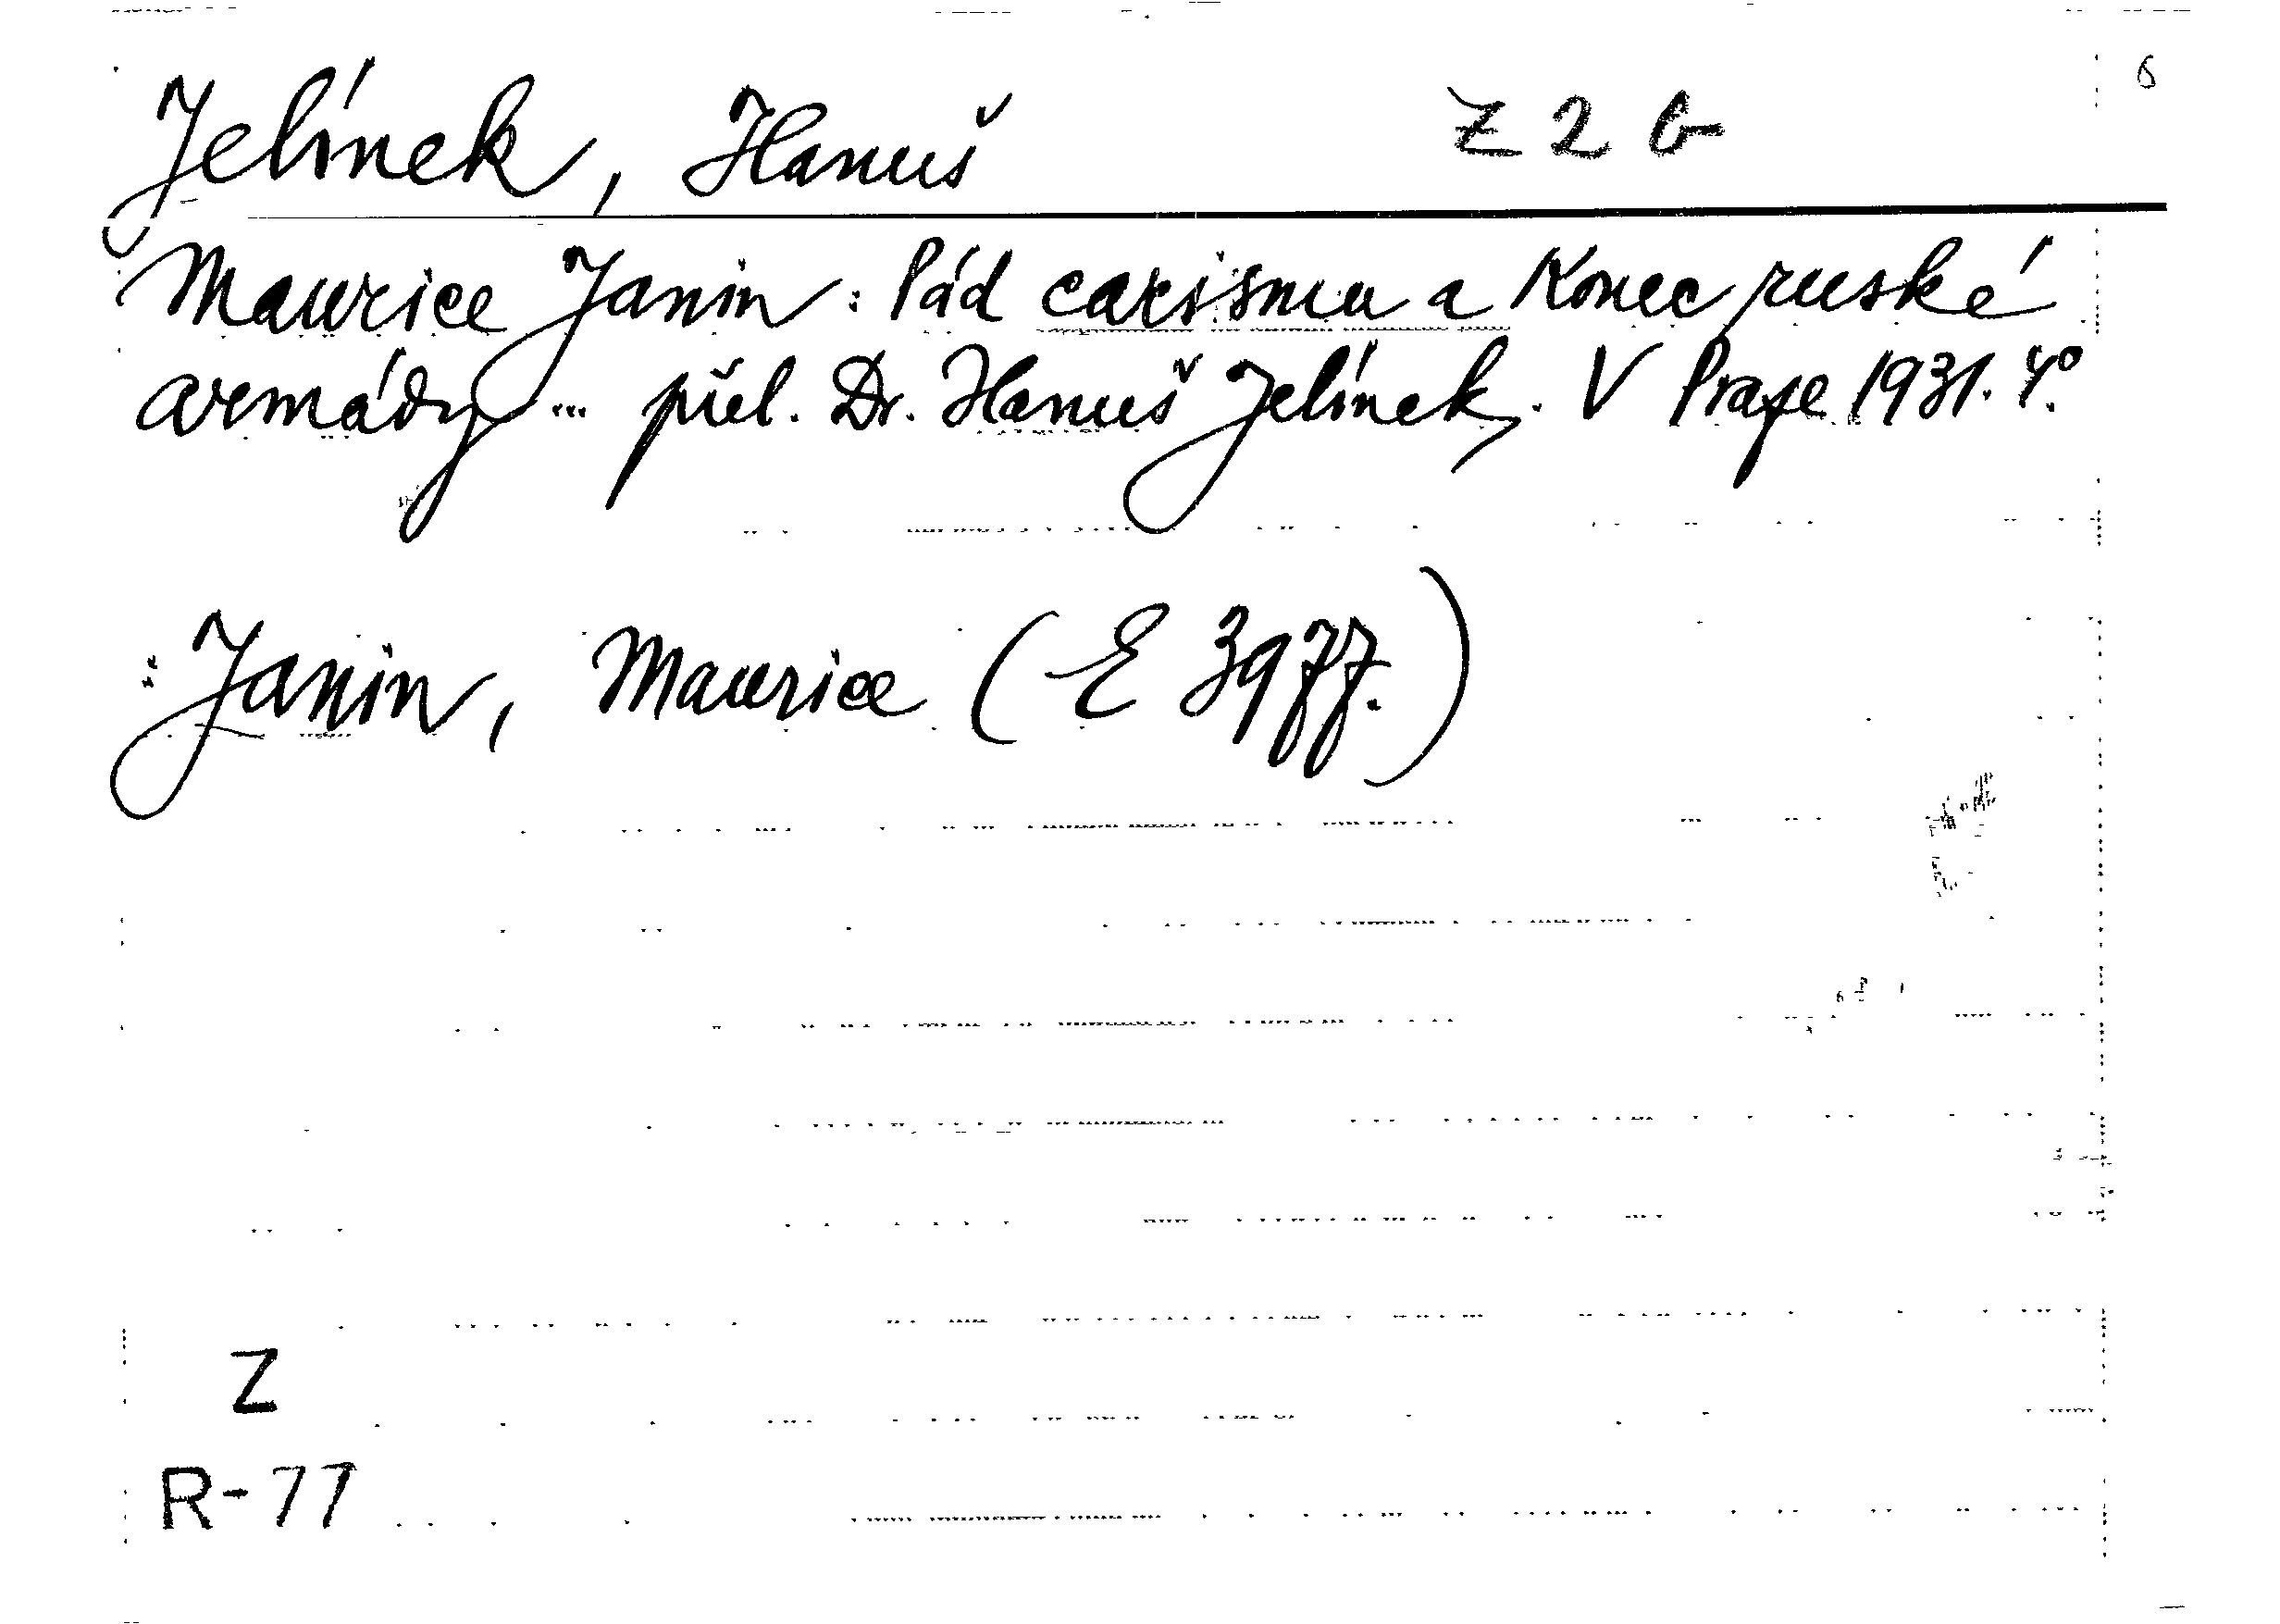 Jelínek, Hanuš Z 2 b 6
Maurice Janin: Pád carismu a konec ruské
armády ... přel. Dr. Hanuš Jelínek. V Praze 1931. 4°.
: Janin, Maurice (E 3977.)
Z
R-77